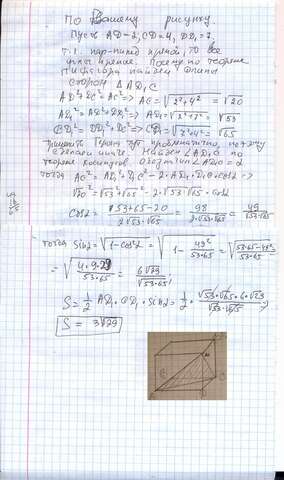 По Вашему рисунку.
Пусть AD=2, CD=4, DD₁=7,
Т.к. пар-пипед прямой, то все
углы прямые. Поэтому по теореме
Пифагора найдем длины
сторон △AD₁C
AD²+DC²=AC² => AC=√2²+4² = √20
AD₁²=AD²+DD₁² => AD₁=√2²+7² = √53
CD₁²=DD₁²+DC² => CD₁=√7²+4² = √65
Герона
сделаем иначе. Найдем ∠AD₁C по
теореме косинусов. ∠AD₁C=α
тогда AC²=AD₁²+D₁C²-2·AD₁·D₁C·cosα =>
√20²=√53²+√65²-2·√53·√65·cosα
cosα = 53+65-20 / 2√53·√65 = 98 / 2·√53·√65 = 49 / √53·√65
тогда sinα=√1-cos²α = √1- 49² / 53·65 = √53·65-49² / √53·65
= √4·9·29 / 53·65 = 6√29 / √53·65;
S= 1/2 AD₁·CD₁·sinα = 1/2 · √53·√65·6√29 / √53·√65 =>
S = 3√29